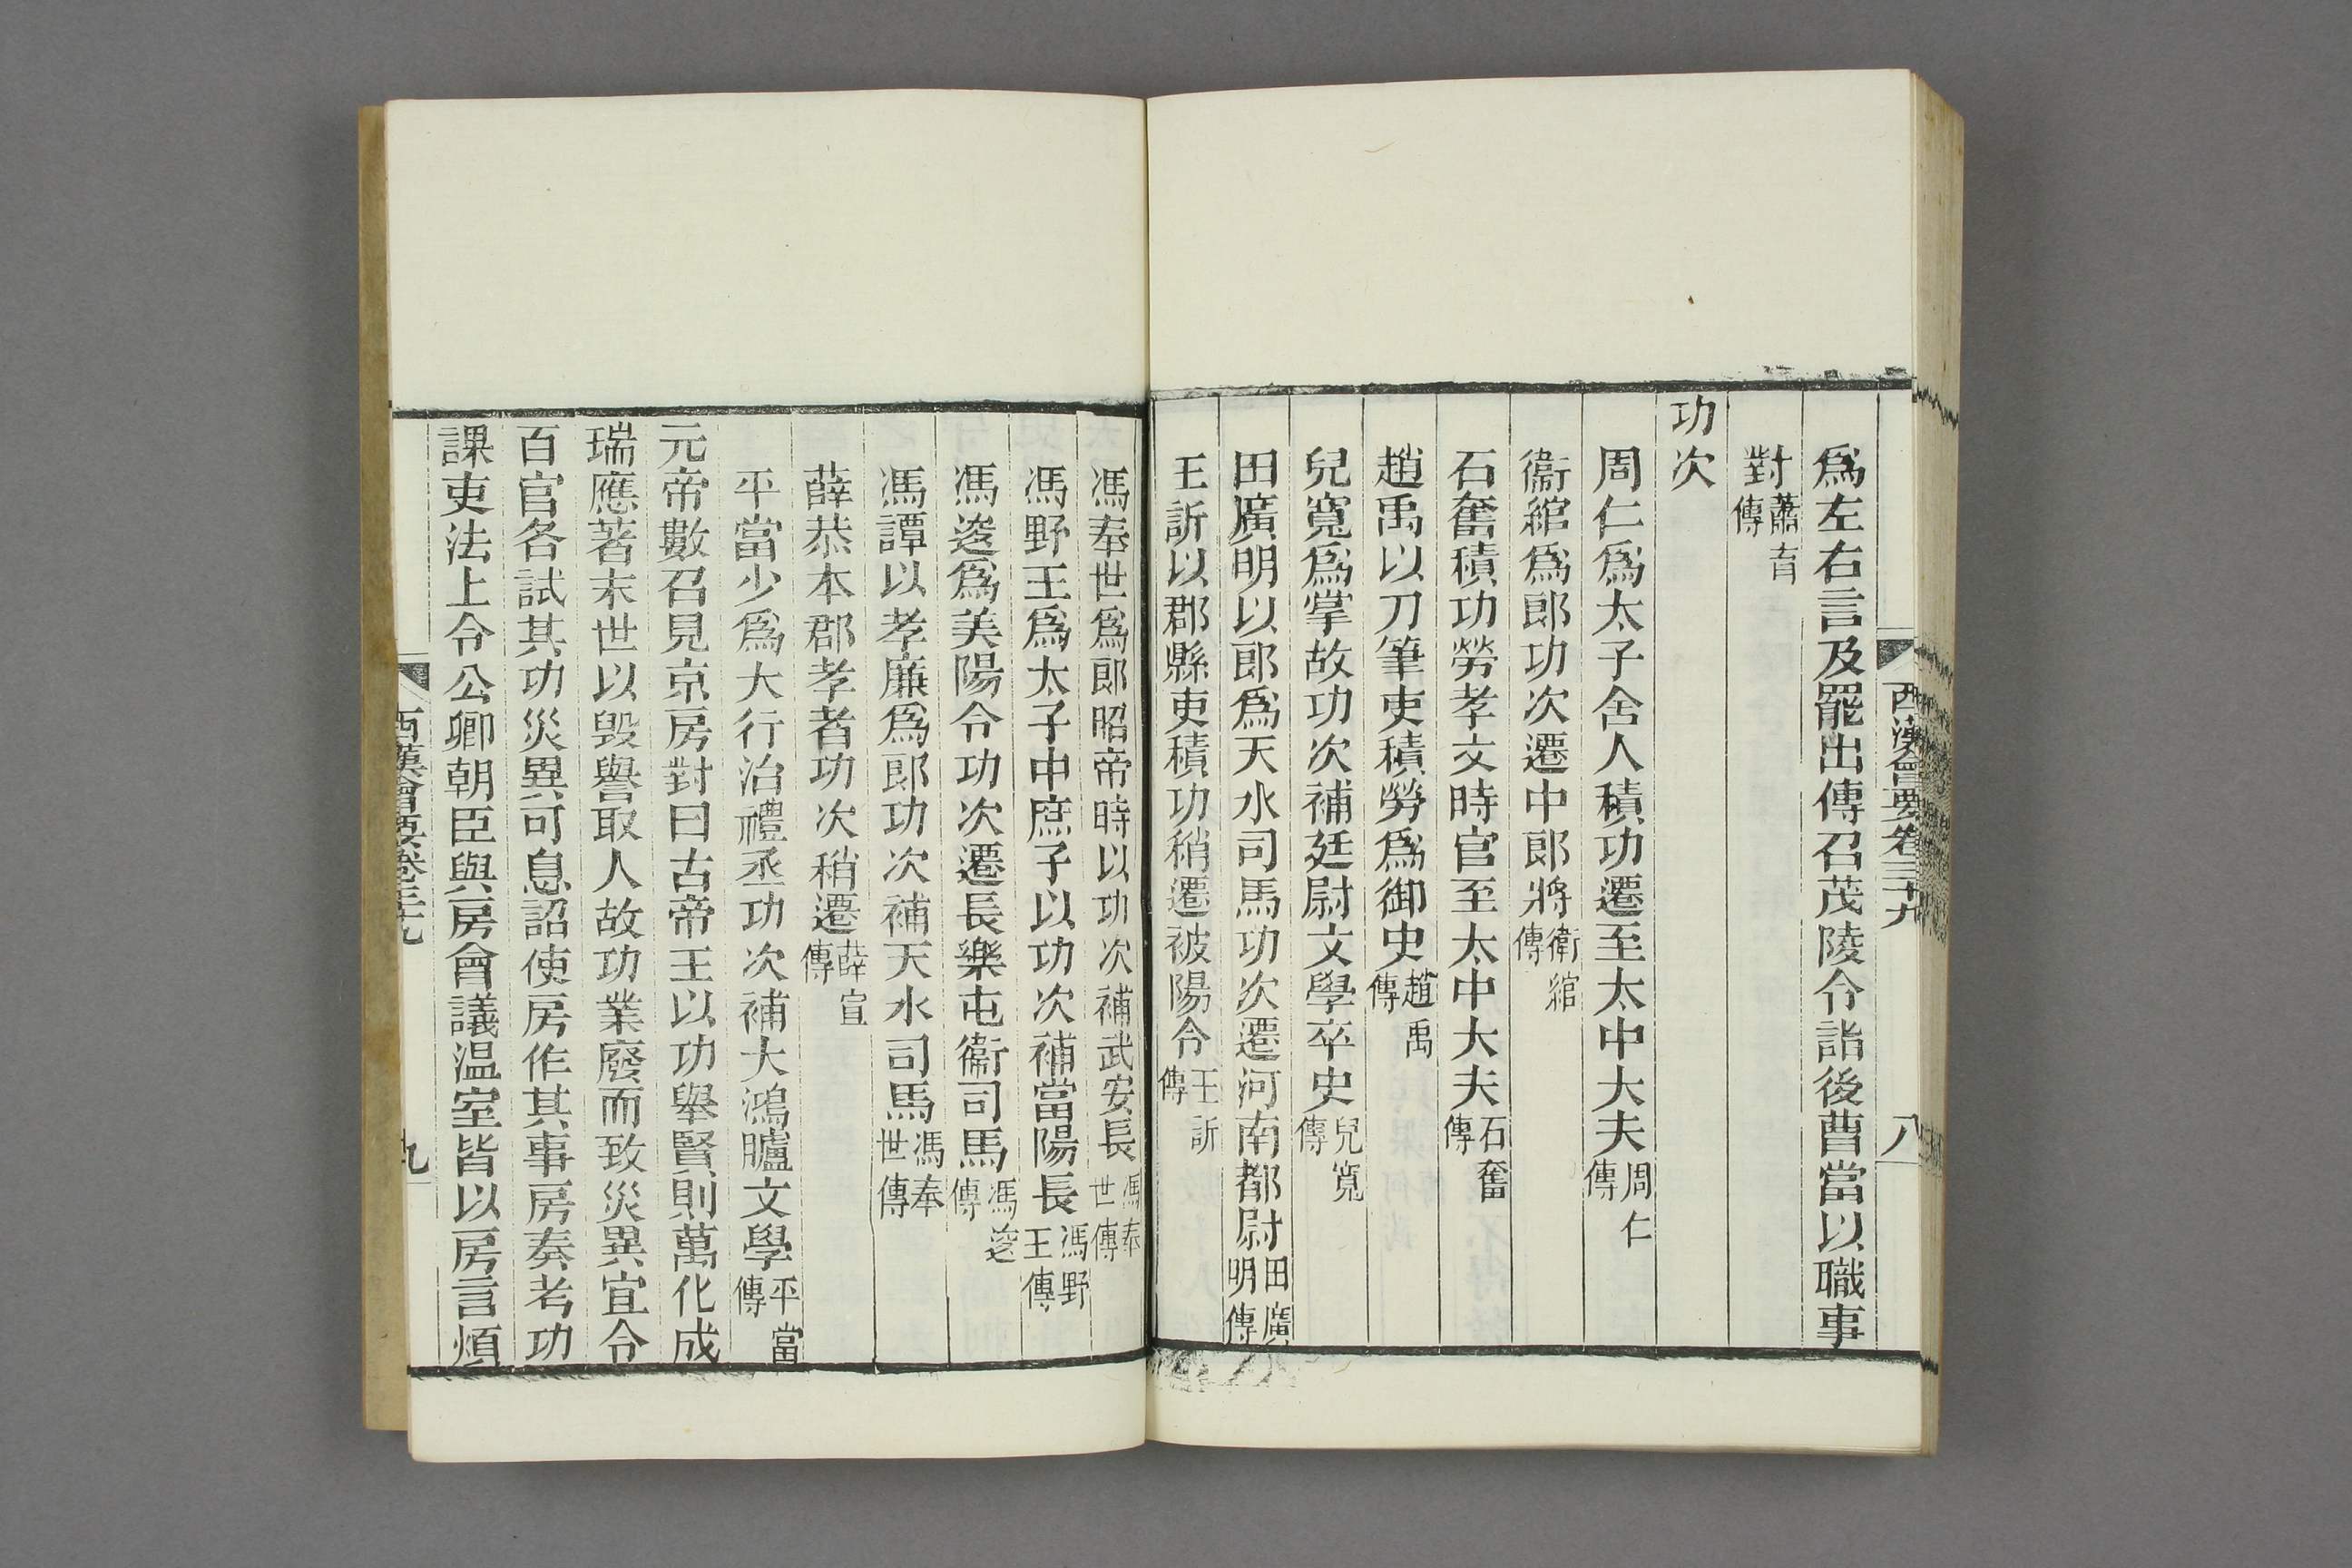 西漢會要卷三十九
八
爲左右言及罷出傳召茂陵令詣後曹當以職事
對蕭育傳
功次
周仁爲太子舍人積功遷至太中大夫周仁傳
衞綰爲郎功次遷中郎將衛綰傳
石奮積功勞孝文時官至太中大夫石奮傳
趙禹以刀筆吏積勞爲御史趙禹傳
兒寬爲掌故功次補廷尉文學卒史兒寬傳
田廣明以郎爲天水司馬功次遷河南都尉田廣明傳
王訢以郡縣吏積功稍遷被陽令王訢傳
馮奉世爲郎昭帝時以功次補武安長馮奉世傳
馮野王爲太子中庶子以功次補當陽長馮野王傳
馮逡爲美陽令功次遷長樂屯衞司馬馮逡傳
馮譚以孝廉爲郎功次補天水司馬馮奉世傳
薛恭本郡孝者功次稍遷薛宣傳
平當少爲大行治禮丞功次補大鴻臚文學平當傳
元帝數召見京房對曰古帝王以功舉賢則萬化成
瑞應著末世以毀譽取人故功業廢而致災異宜令
百官各試其功災異可息詔使房作其事房奏考功
課吏法上令公卿朝臣與房會議温室皆以房言煩
西漢會要卷三十九
九